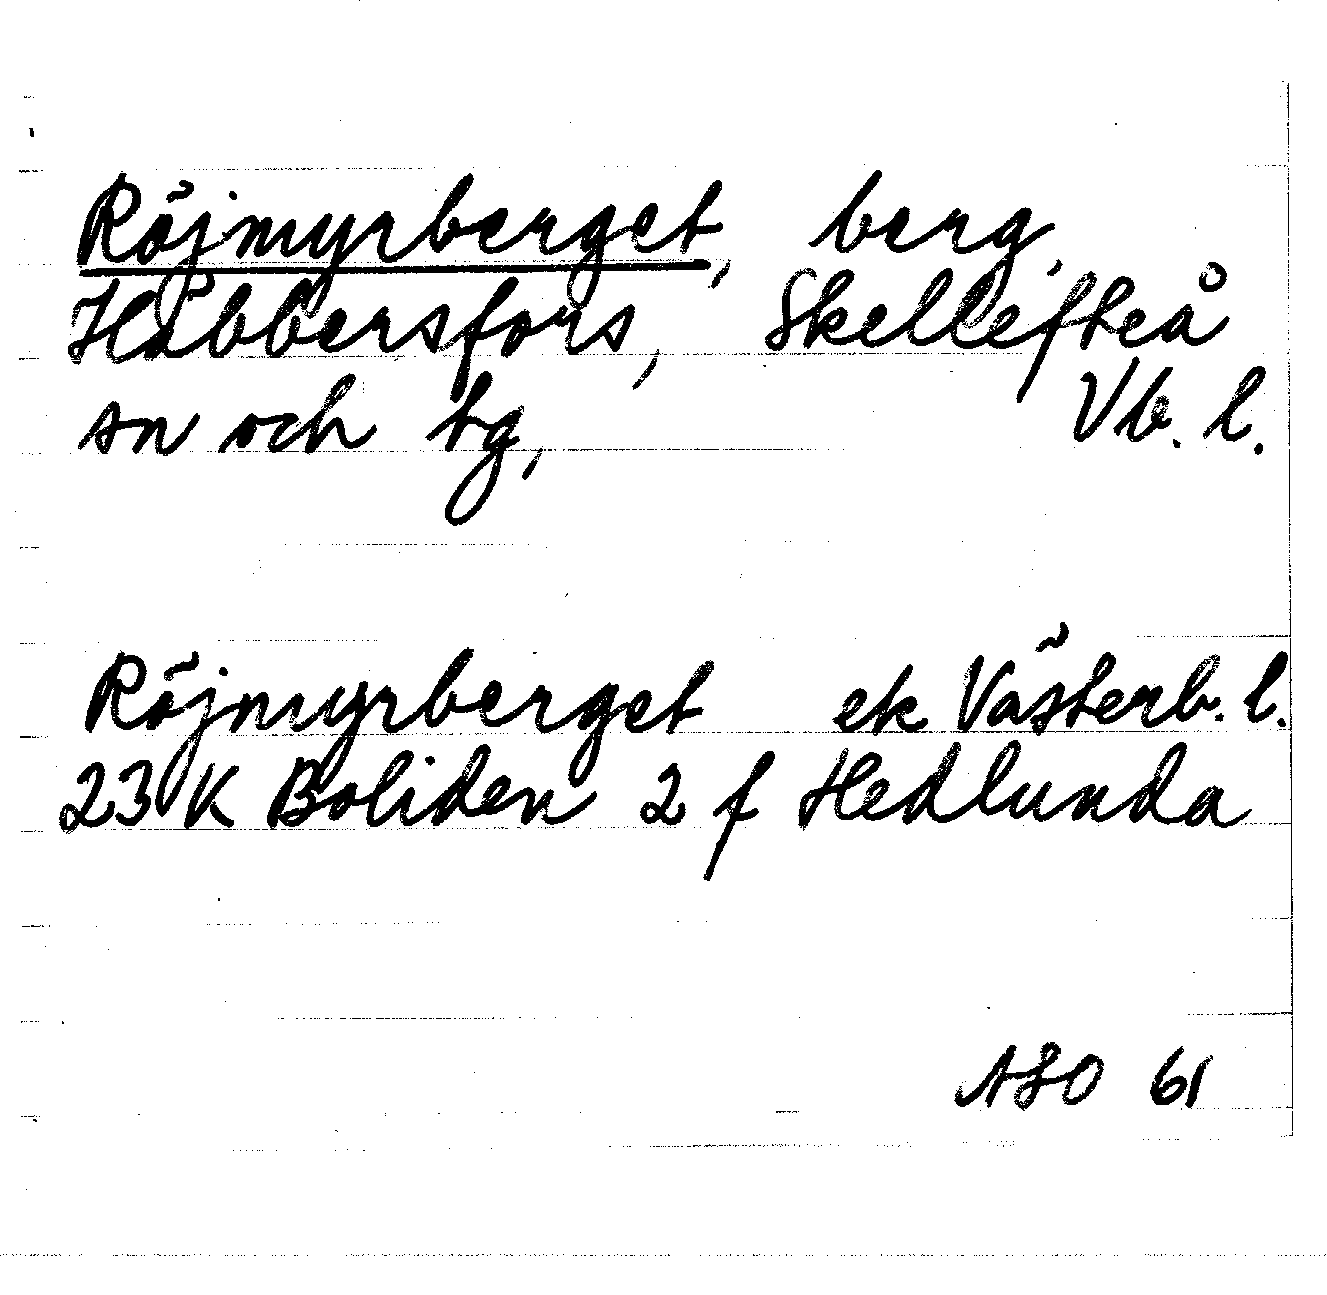 Röjmyrberget, berg,
Håbbersfors, Skellefteå
sn och tg, Vb. l.
Röjmyrberget ek Västerb. l.
23 K Boliden 2 f Hedlunda
ASO 61